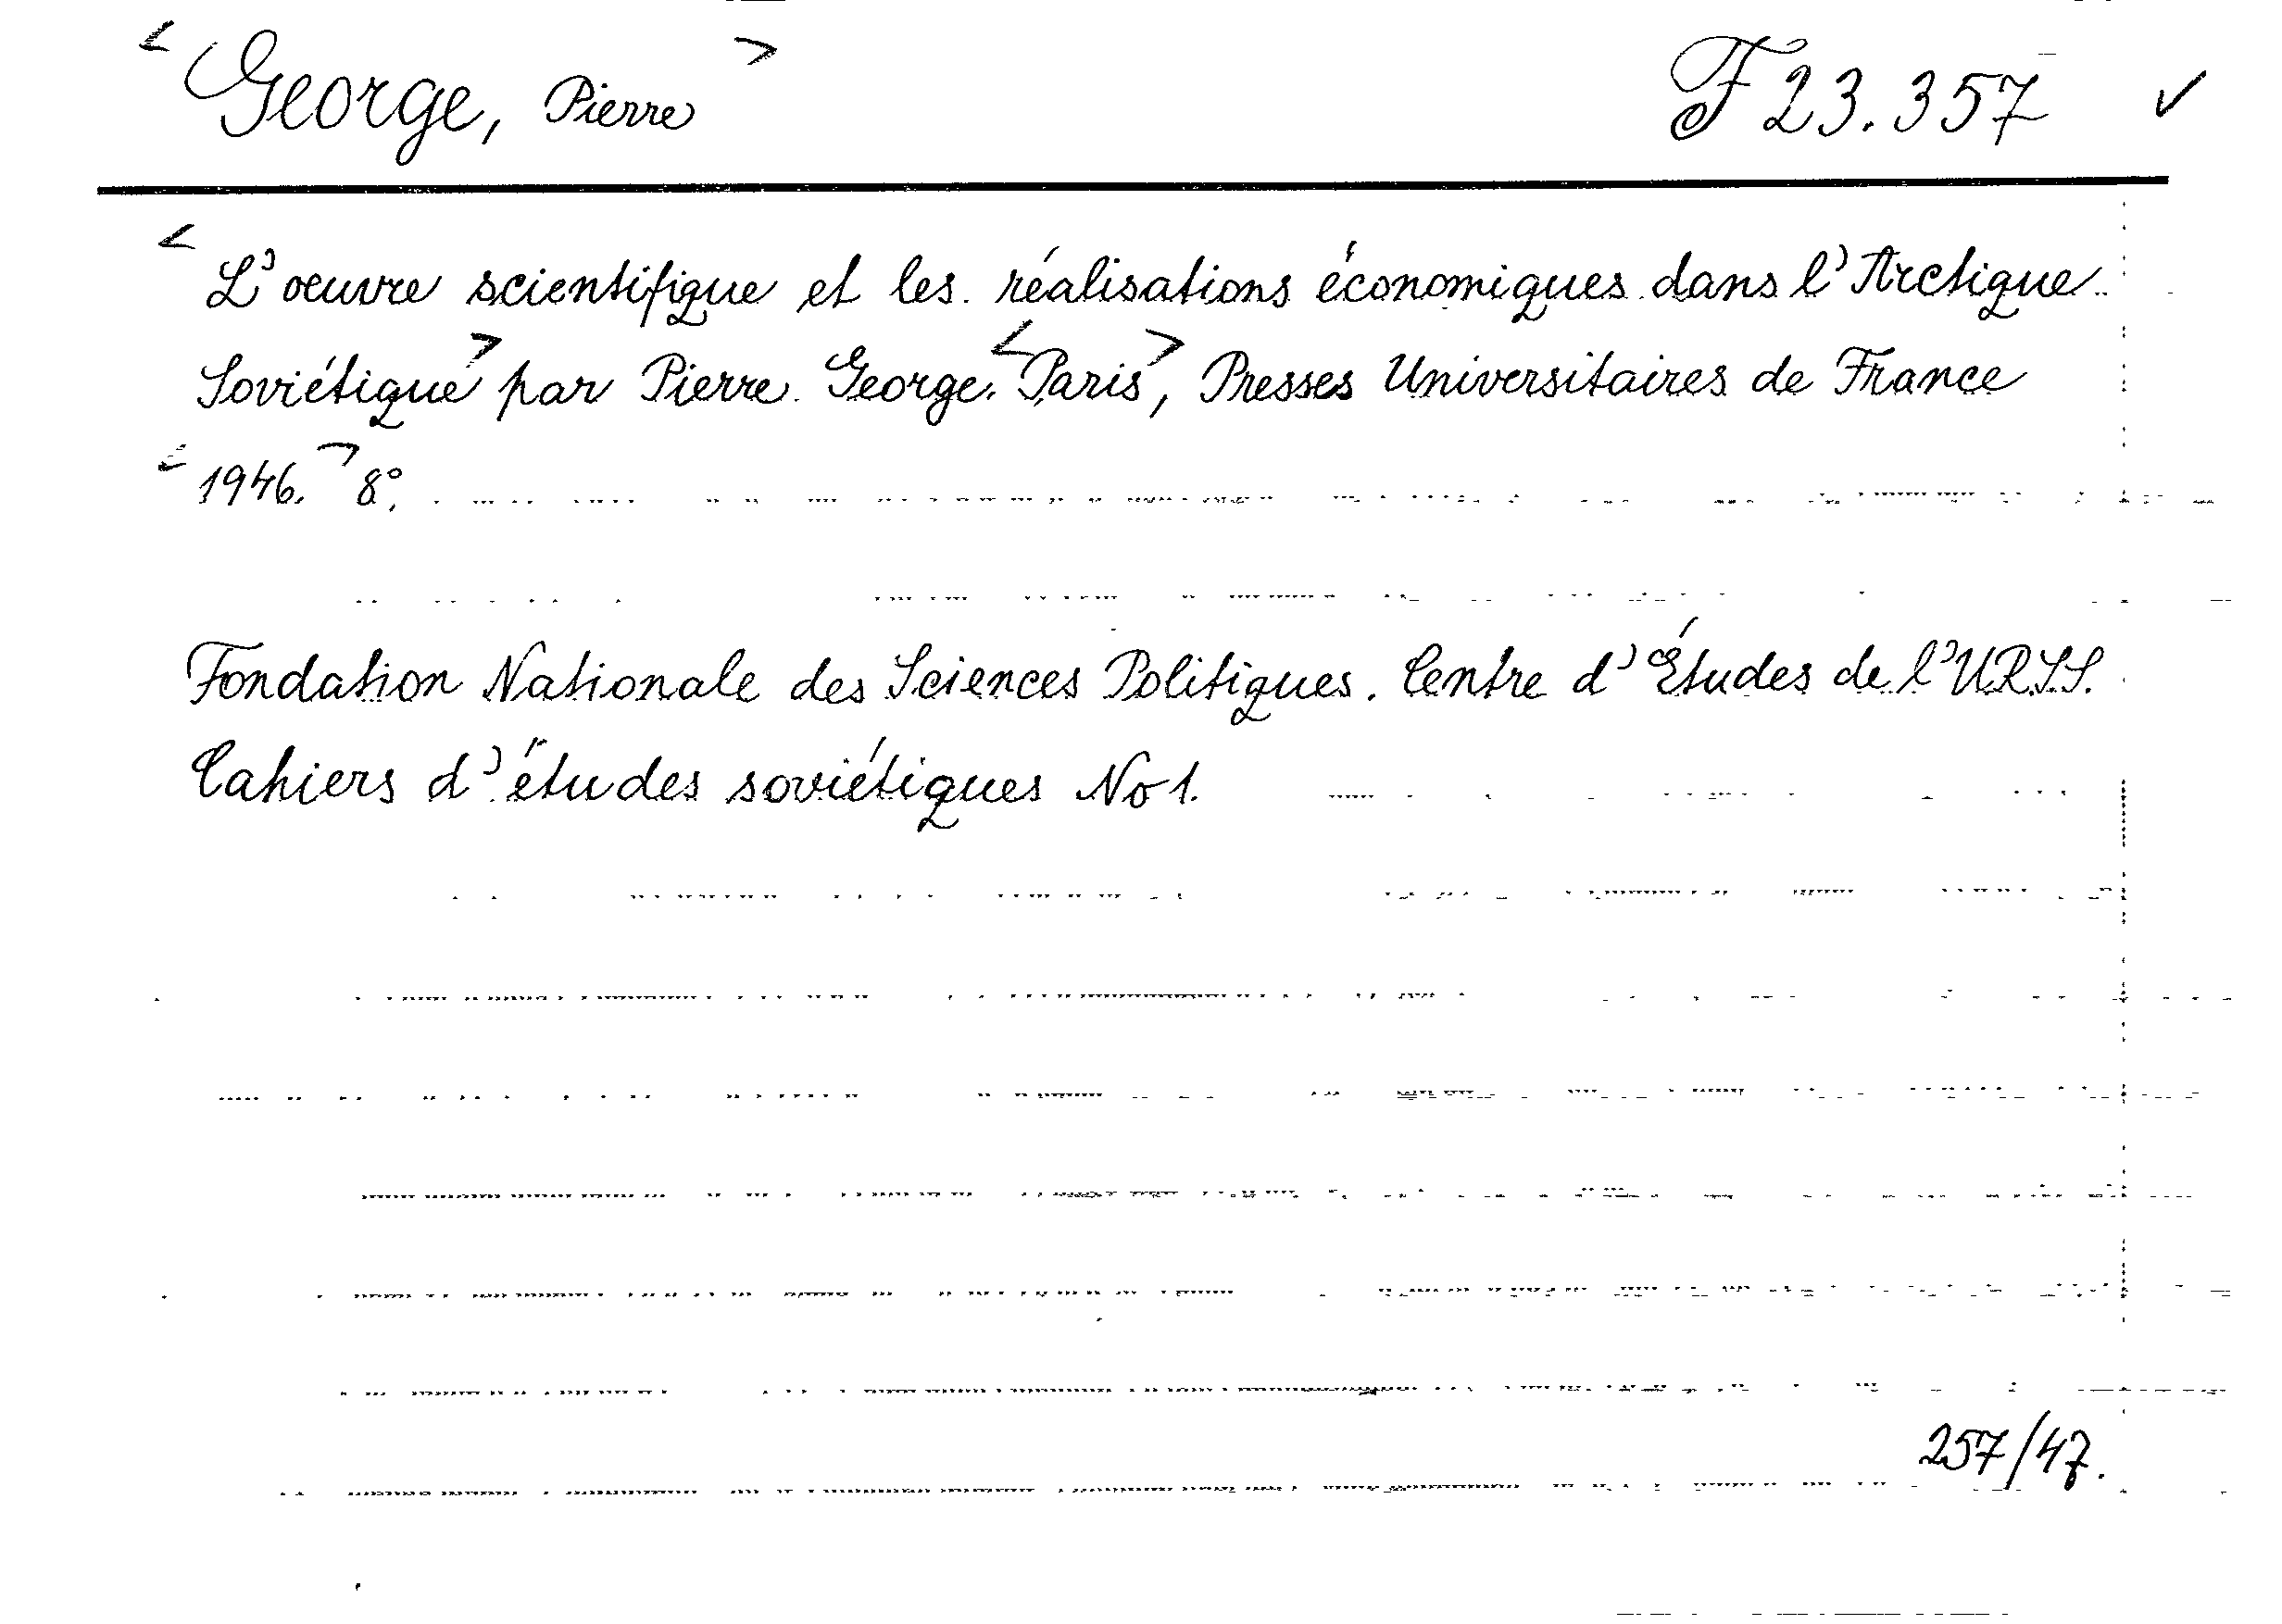 < George, Pierre > F 23.357 ✓
< L'oeuvre scientifique et les réalisations économiques dans l'Arctique
Soviétique > par Pierre George. < Paris >, Presses Universitaires de France
< 1946. > 8°.
Fondation Nationale des Sciences Politiques. Centre d'Études de l'U.R.S.S.
Cahiers d'études soviétiques No 1.
257/47.